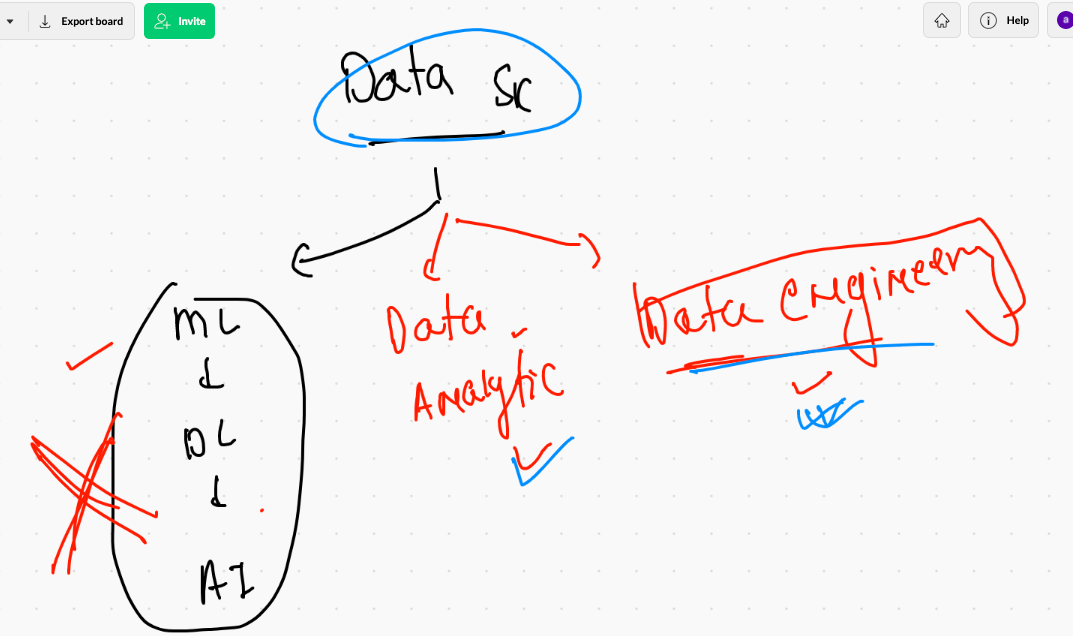 Export board
Invite
Help
a
Data Sc
ML
DL
AI
Data
Analytic
Data Engineering